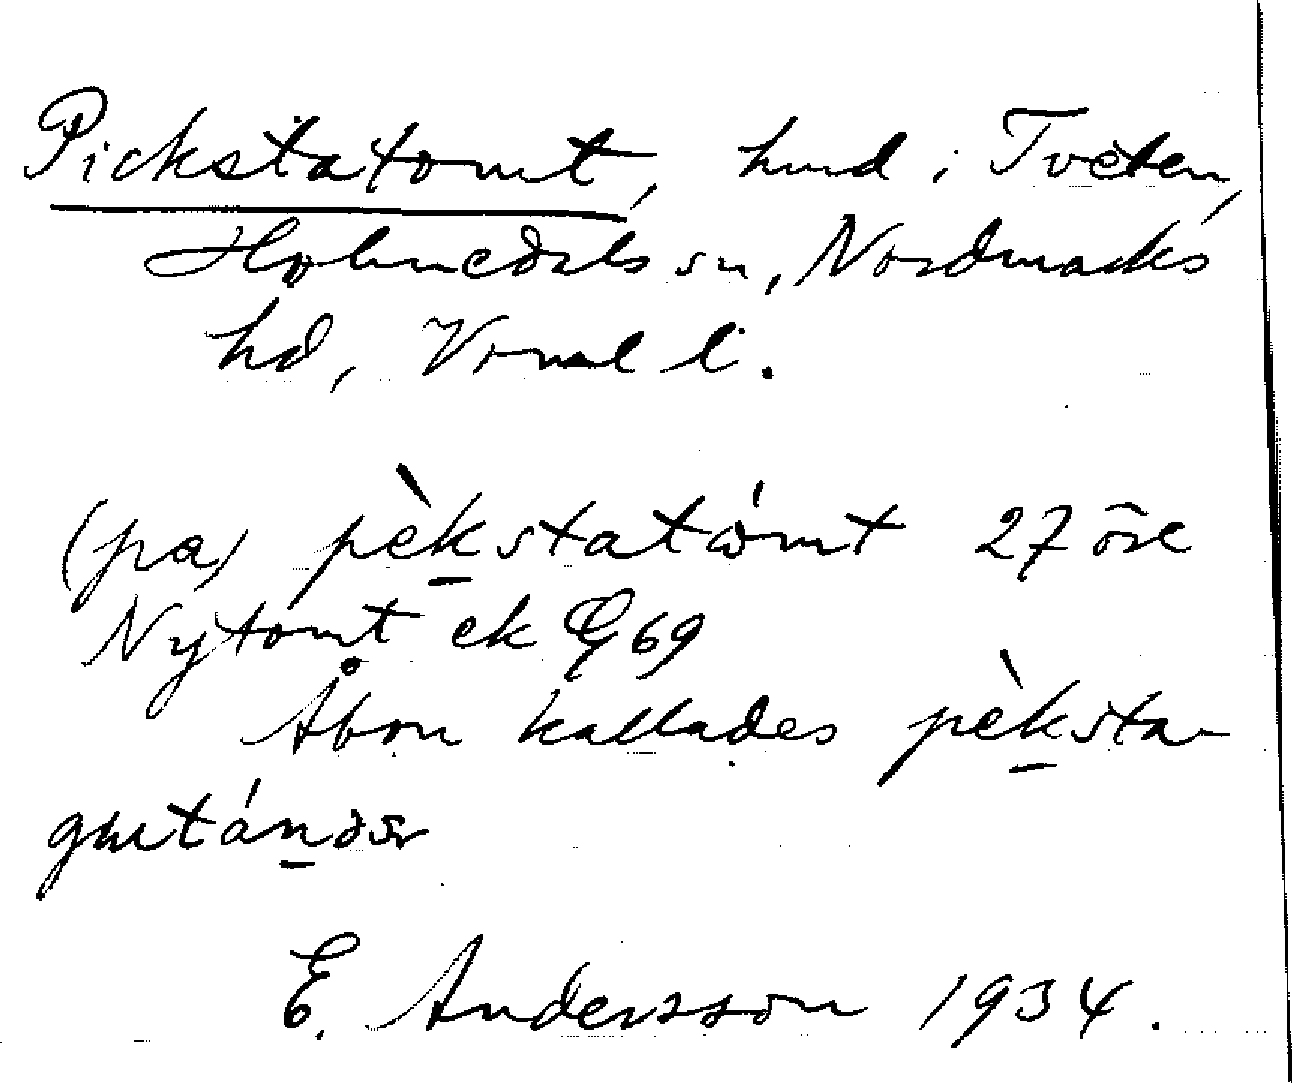 Pickstatomt, hmd i Tveten,
Holmedals sn, Nordmarks
hd, Vrml l.
(på) pèkstatómt 27 öre
Nytomt ek G 69
Åbon kallades pèksta-
gustánəsr
E. Andersson 1934.